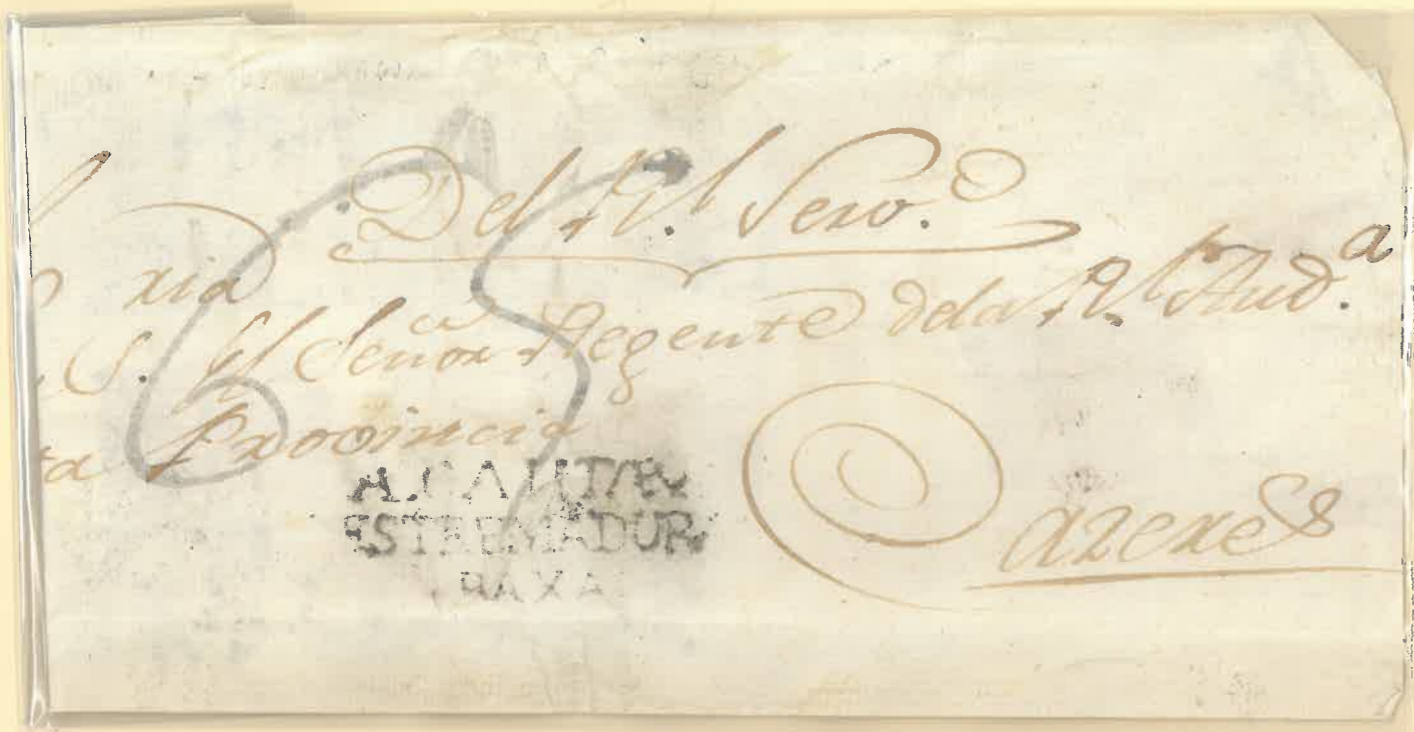 Del R.l Serv.o
xia
S. el Señor Regente dela R.l Aud.a
ta Provincia
Cazeres
ALCANTAR
ESTREMADURA
BAXA